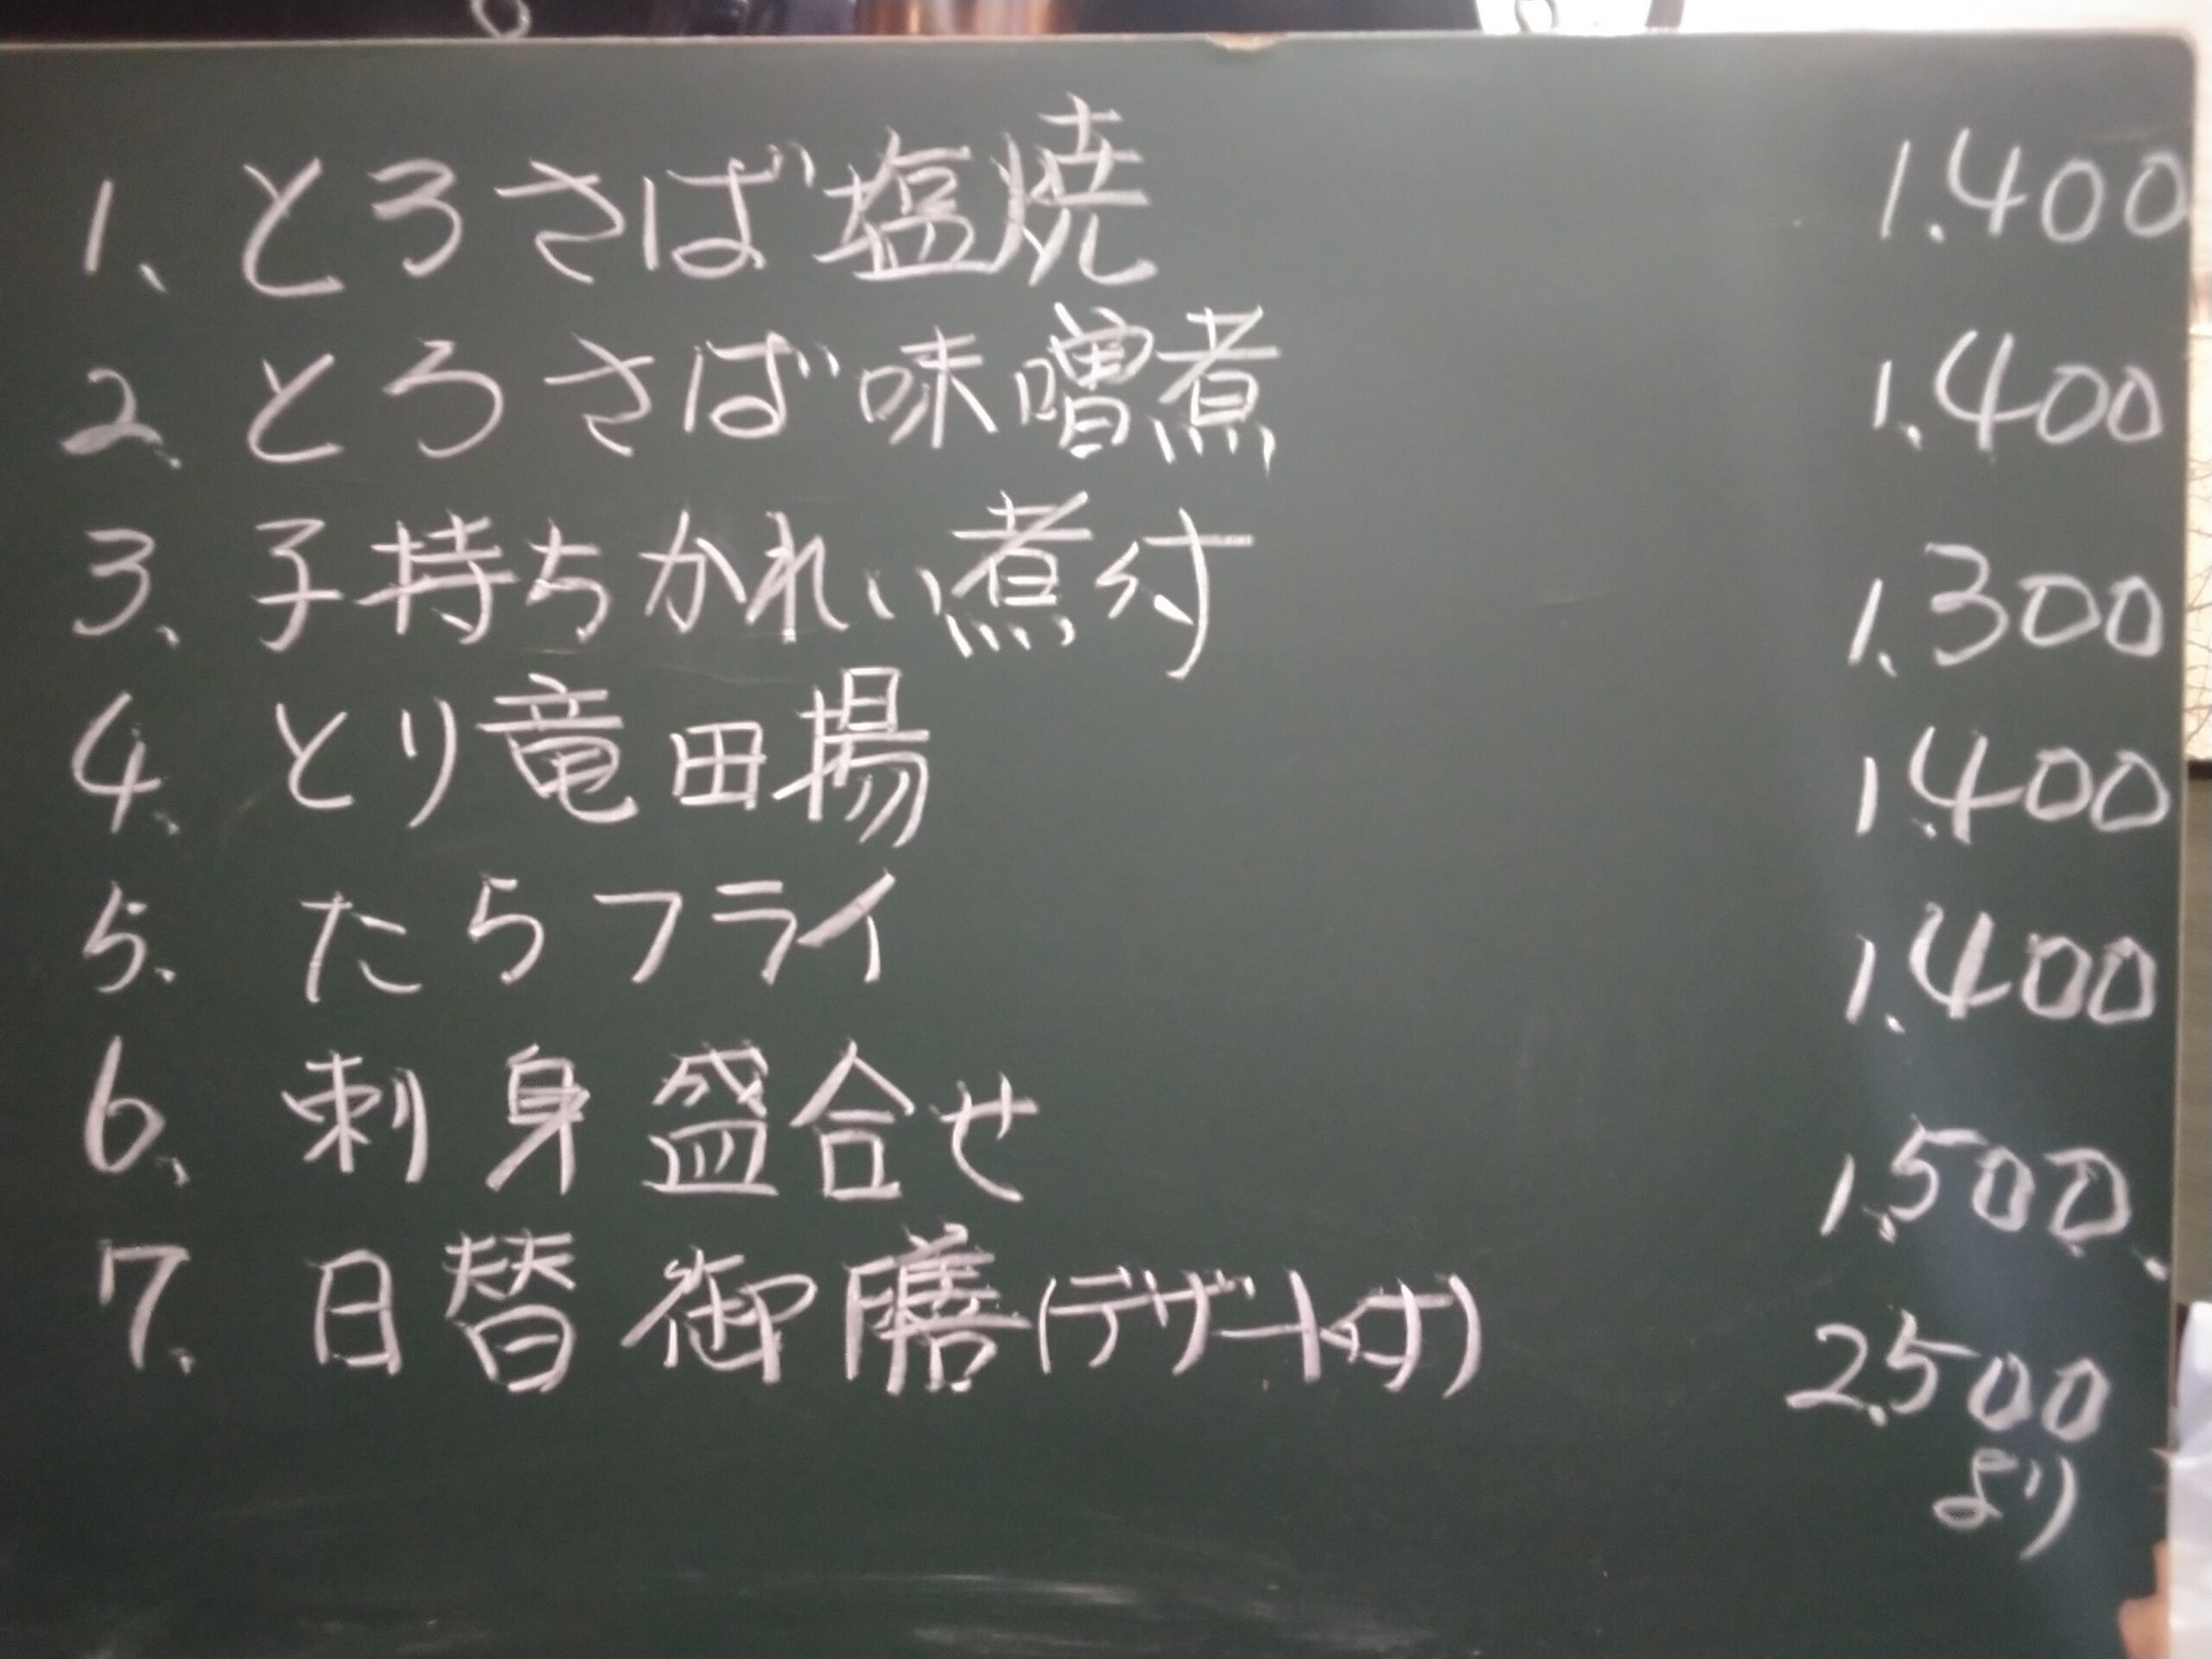 1、とろさば塩焼 1.400
2、とろさば味噌煮 1.400
3、子持ちかれい煮付 1.300
4、とり竜田揚 1.400
5、たらフライ 1.400
6、刺身盛合せ 1.500、
7、日替御膳(デザート付) 2.500
より